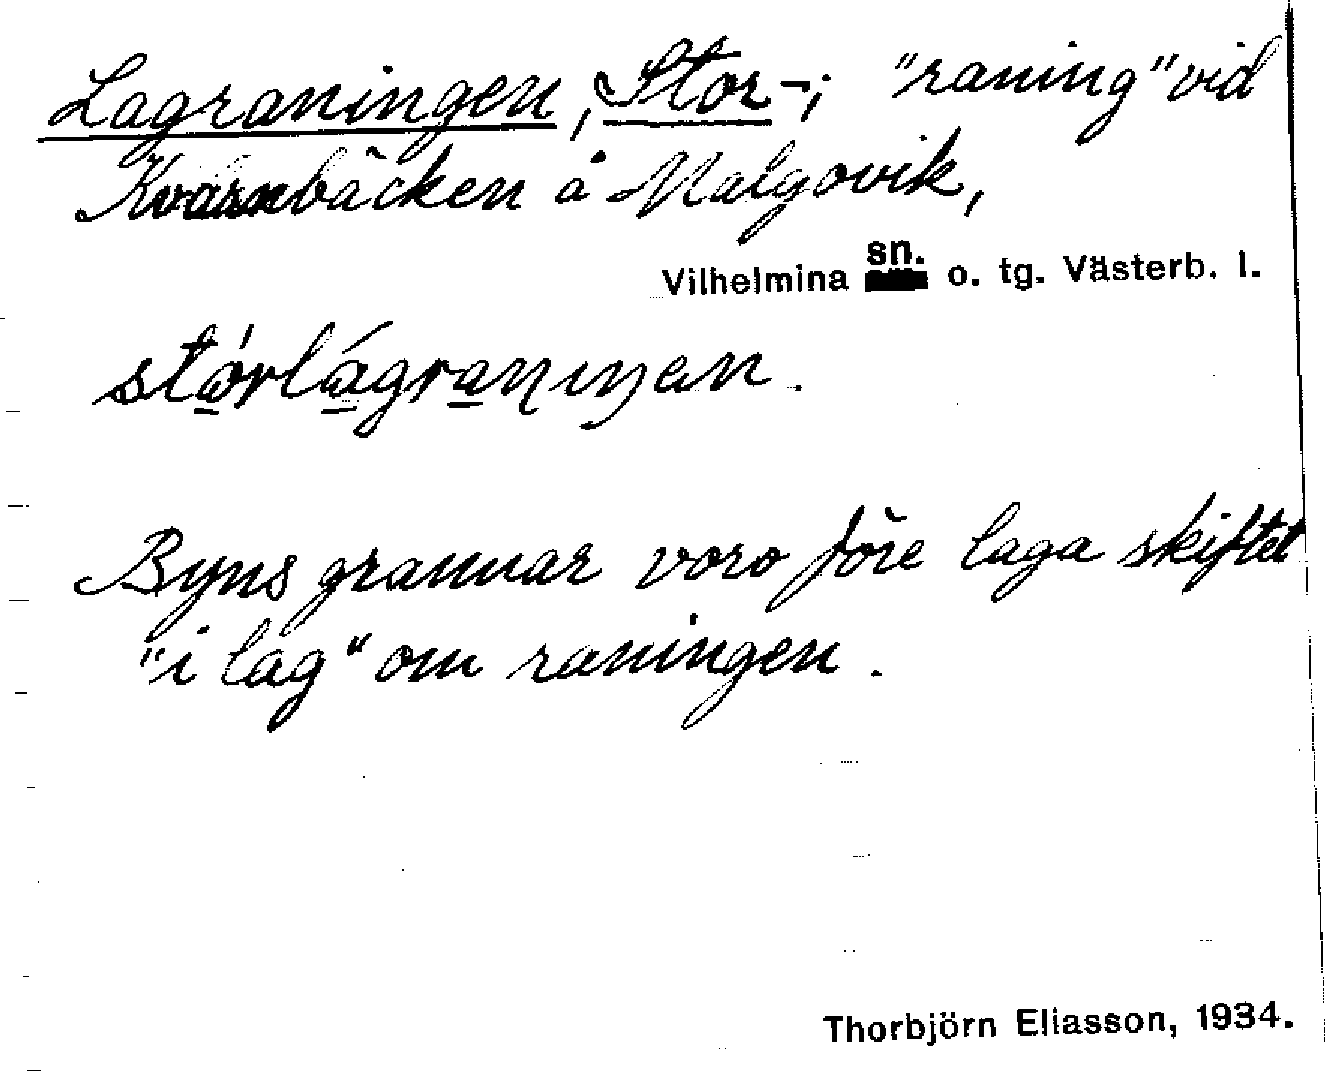 Lagraningen, Stor-; "raning" vid
Kvarnbäcken å Malgovik,
Vilhelmina sn. o. tg. Västerb. l.
stǫ́rlágranıŋen.
Byns grannar voro före laga skiftet
"i lag" om raningen.
Thorbjörn Eliasson, 1934.